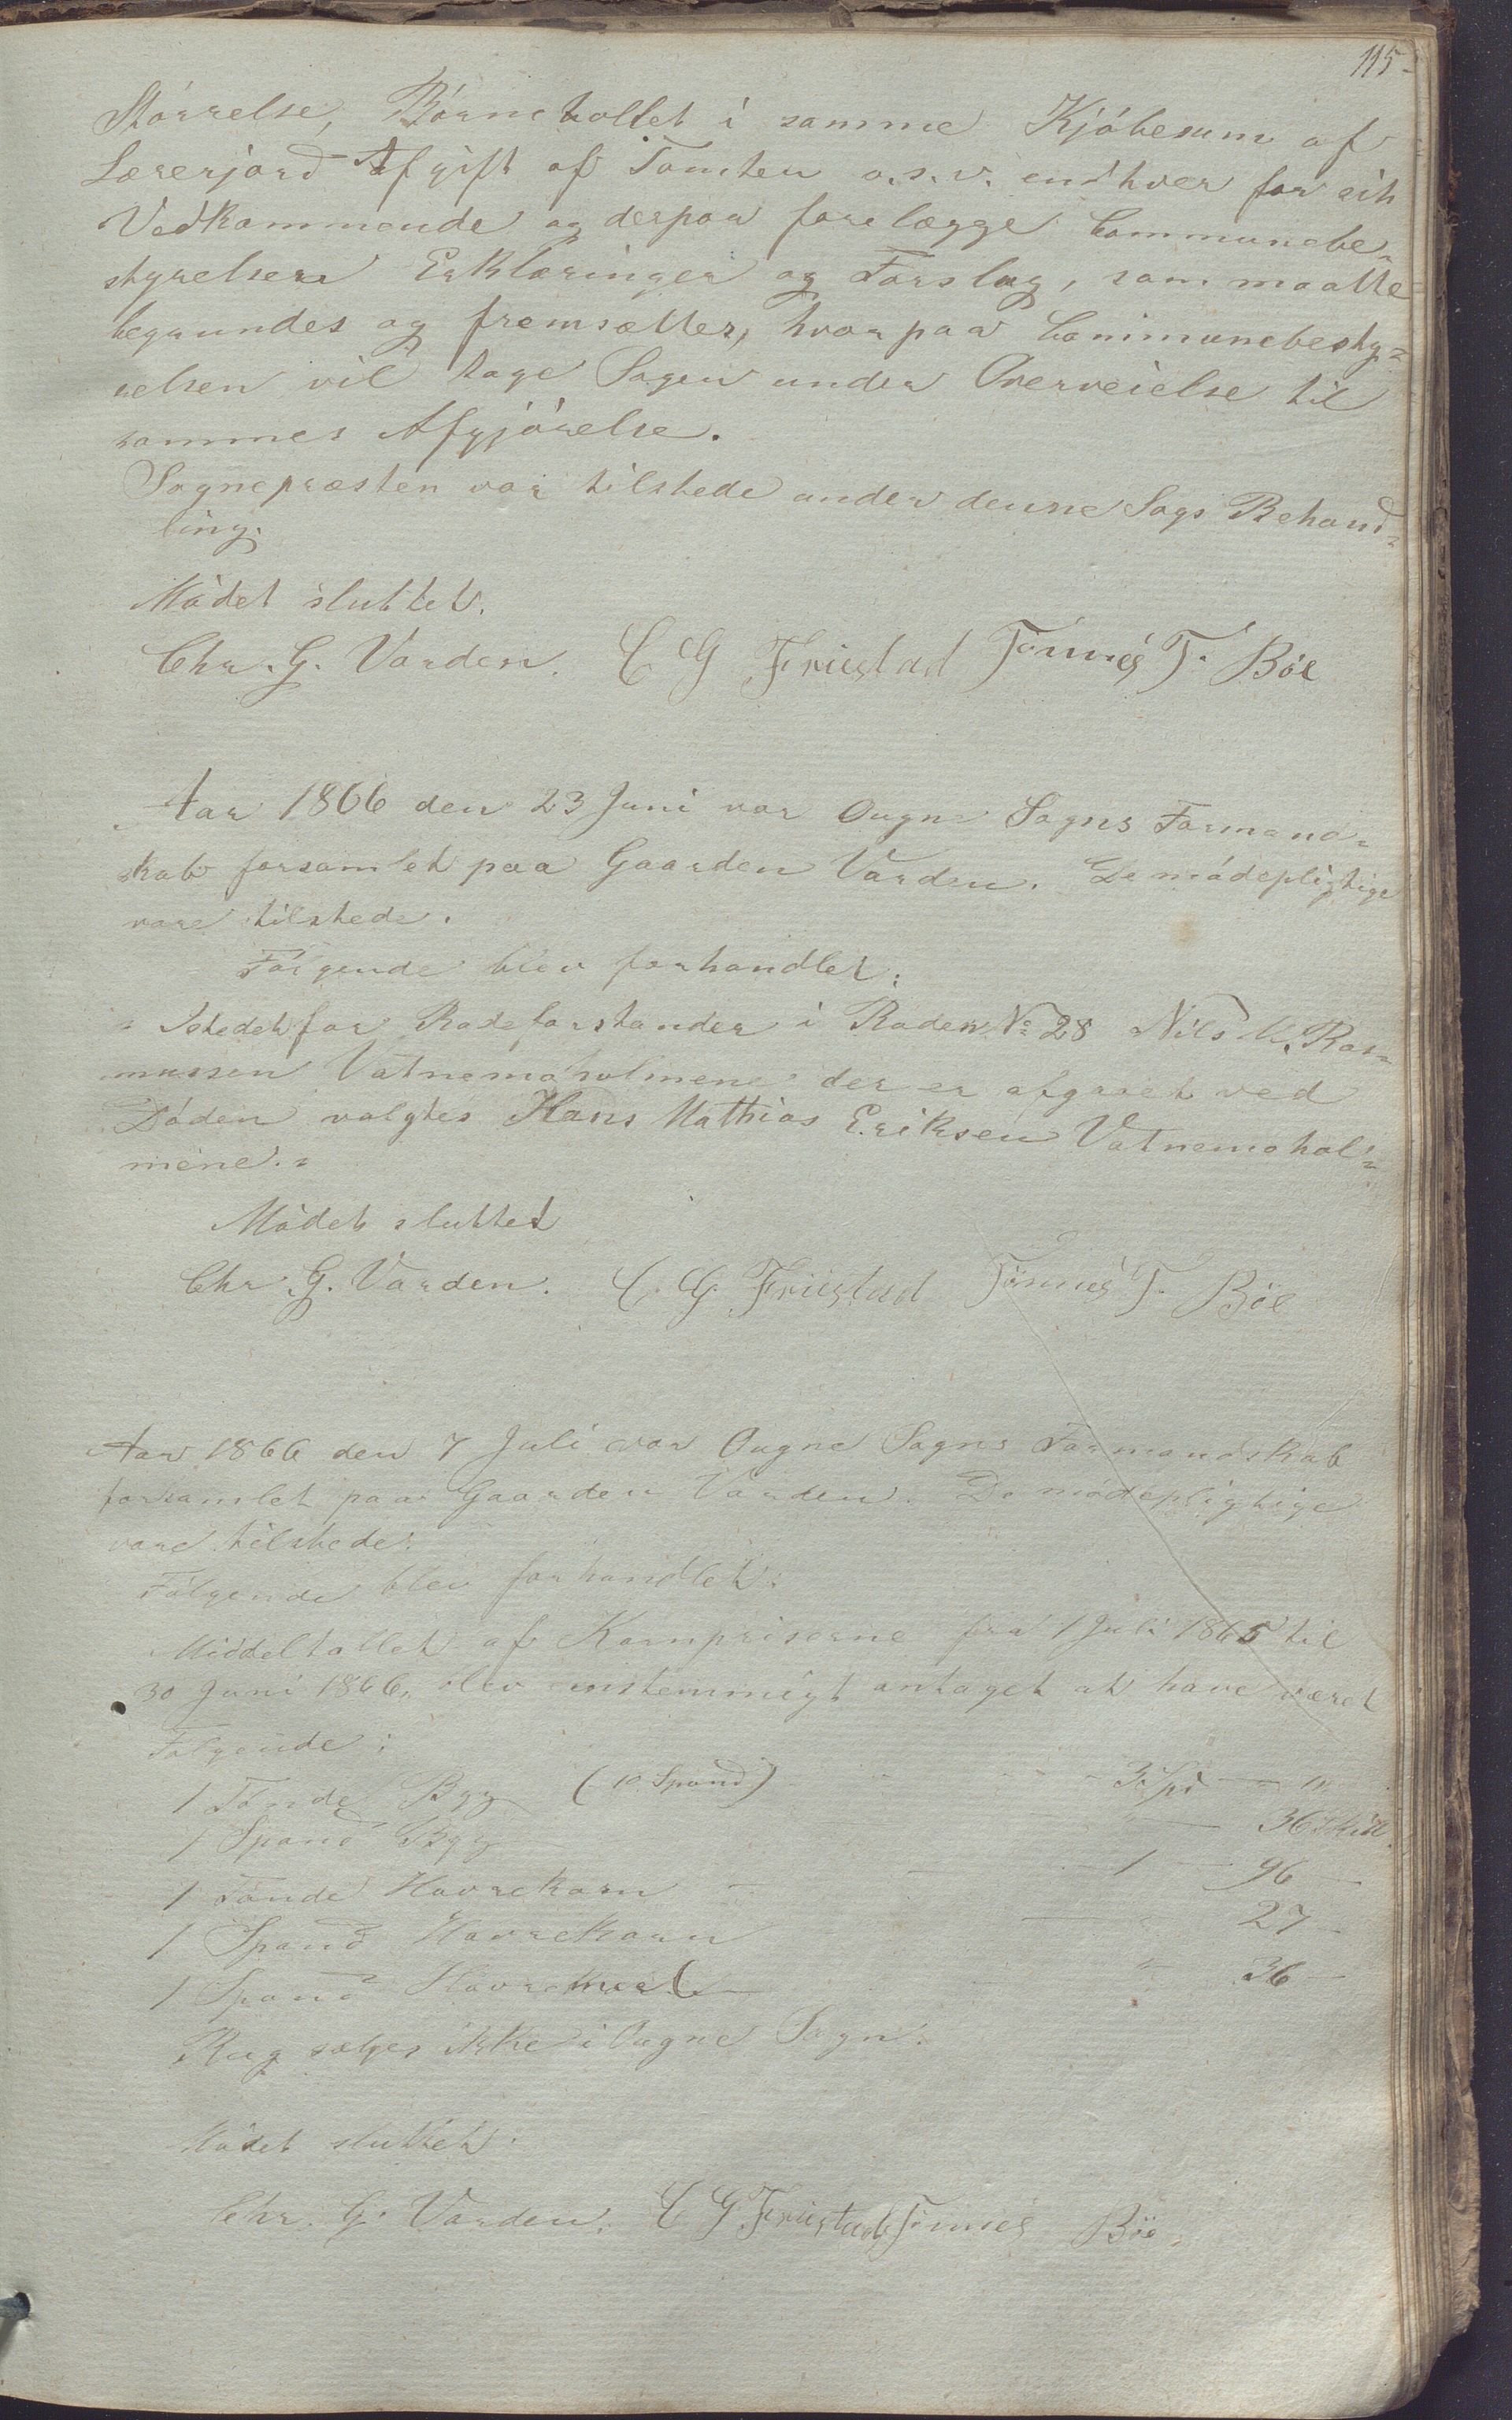 115
Størrelse, Børnetallet i samme Kjøbesum af
Lærerjord Afgift af Tomten o.s.v. enhver for sit
Vedkommende og derpaa forelægge Communebe-
styrelsen Erklæringer og Forslag, som maatte
begrundes og fremsættes, hvorpaa Communebesty-
relsen vil tage Sagen under Overveielse til
sammes Afgjørelse.
Sognepræsten var tilstede under denne Sags Behand-
ling.
Mødet sluttet.
Chr. G. Varden. C G Friestad Tönnes T. Böe
Aar 1866 den 23 Juni var Ougne Sogns Formand-
skab forsamlet paa Gaarden Varden. De mødepligtige
vare tilstede.
Følgende blev forhandlet:
"Istedetfor Rodeforstander i Roden No 28 Nils M. Ras-
mussen Vatnemoholmene der er afgaaet ved
Døden valgtes Hans Mathias Eriksen Vatnemohol-
mene."
Mødet sluttet
Chr. G. Varden. C. G. Friestad Tönnes T. Böe
Aar 1866 den 7 Juli var Ougne Sogns Formandskab
forsamlet paa Gaarden Varden. De mødepligtige
vare tilstede.
Følgende blev forhandlet:
Middeltallet af Kornpriserne fra 1 Juli 1865 til
30 Juni 1866, blev enstemmigt antaget at have været
Følgende:
1 Tønde Byg (10 Spand) - - - 3 Spd — "
1 Spand Byg — 36 Skill.
1 Tønde Havrekorn — - 1 — 96 —
1 Spand Havrekorn — " 27 —
1 Spand Havremel — " 36 —
Rug sælges ikke i Ougne Sogn.
Mødet sluttet.
Chr. G. Varden. C G Friestad Tönnes Böe